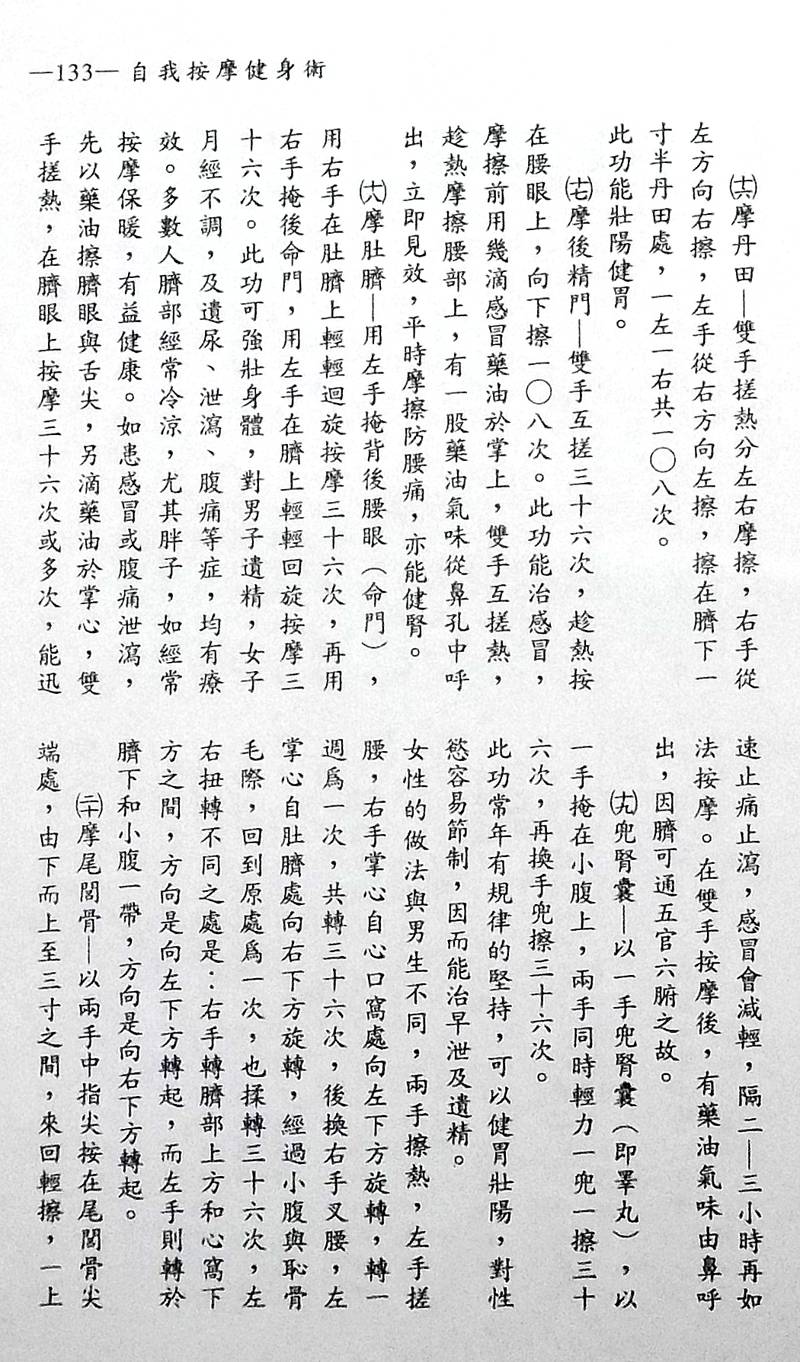 —133— 自我按摩健身術
㈯摩丹田—雙手搓熱分左右摩擦，右手從
左方向右擦，左手從右方向左擦，擦在臍下一
寸半丹田處，一左一右共一〇八次。
此功能壯陽健胃。
㈰摩後精門—雙手互搓三十六次，趁熱按
在腰眼上，向下擦一〇八次。此功能治感冒，
摩擦前用幾滴感冒藥油於掌上，雙手互搓熱，
趁熱摩擦腰部上，有一股藥油氣味從鼻孔中呼
出，立即見效，平時摩擦防腰痛，亦能健腎。
(十八)摩肚臍—用左手掩背後腰眼（命門），
用右手在肚臍上輕輕迴旋按摩三十六次，再用
右手掩後命門，用左手在臍上輕輕回旋按摩三
十六次。此功可強壯身體，對男子遺精，女子
月經不調，及遺尿、泄瀉、腹痛等症，均有療
效。多數人臍部經常冷涼，尤其胖子，如經常
按摩保暖，有益健康。如患感冒或腹痛泄瀉，
先以藥油擦臍眼與舌尖，另滴藥油於掌心，雙
手搓熱，在臍眼上按摩三十六次或多次，能迅
速止痛止瀉，感冒會減輕，隔二—三小時再如
法按摩。在雙手按摩後，有藥油氣味由鼻呼
出，因臍可通五官六腑之故。
(十九)兜腎囊—以一手兜腎囊（即睪丸），以
一手掩在小腹上，兩手同時輕力一兜一擦三十
六次，再換手兜擦三十六次。
此功常年有規律的堅持，可以健胃壯陽，對性
慾容易節制，因而能治早泄及遺精。
女性的做法與男生不同，兩手擦熱，左手搓
腰，右手掌心自心口窩處向左下方旋轉，轉一
週為一次，共轉三十六次，後換右手叉腰，左
掌心自肚臍處向右下方旋轉，經過小腹與恥骨
毛際，回到原處為一次，也揉轉三十六次，左
右扭轉不同之處是：右手轉臍部上方和心窩下
方之間，方向是向左下方轉起，而左手則轉於
臍下和小腹一帶，方向是向右下方轉起。
(二十)摩尾閭骨—以兩手中指尖按在尾閭骨尖
端處，由下而上至三寸之間，來回輕擦，一上